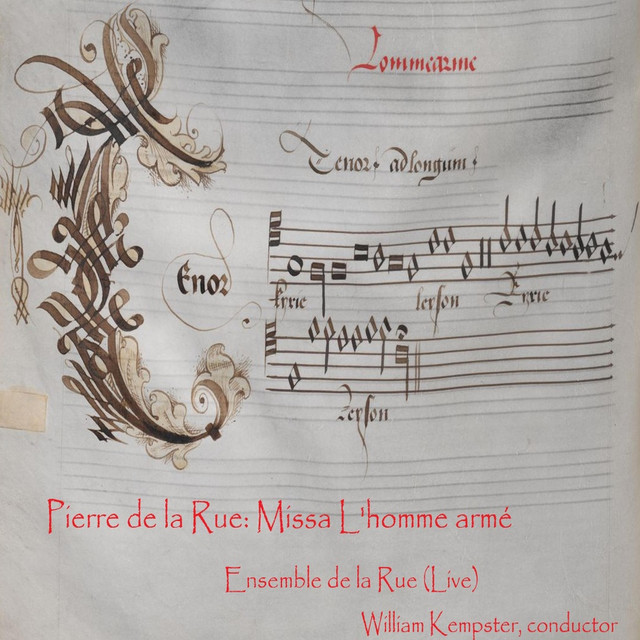 Lommearme
Tenor adlongum
Tenor
kyrie leyson Kyrie
leyson
Pierre de la Rue: Missa L'homme armé
Ensemble de la Rue (Live)
William Kempster, conductor